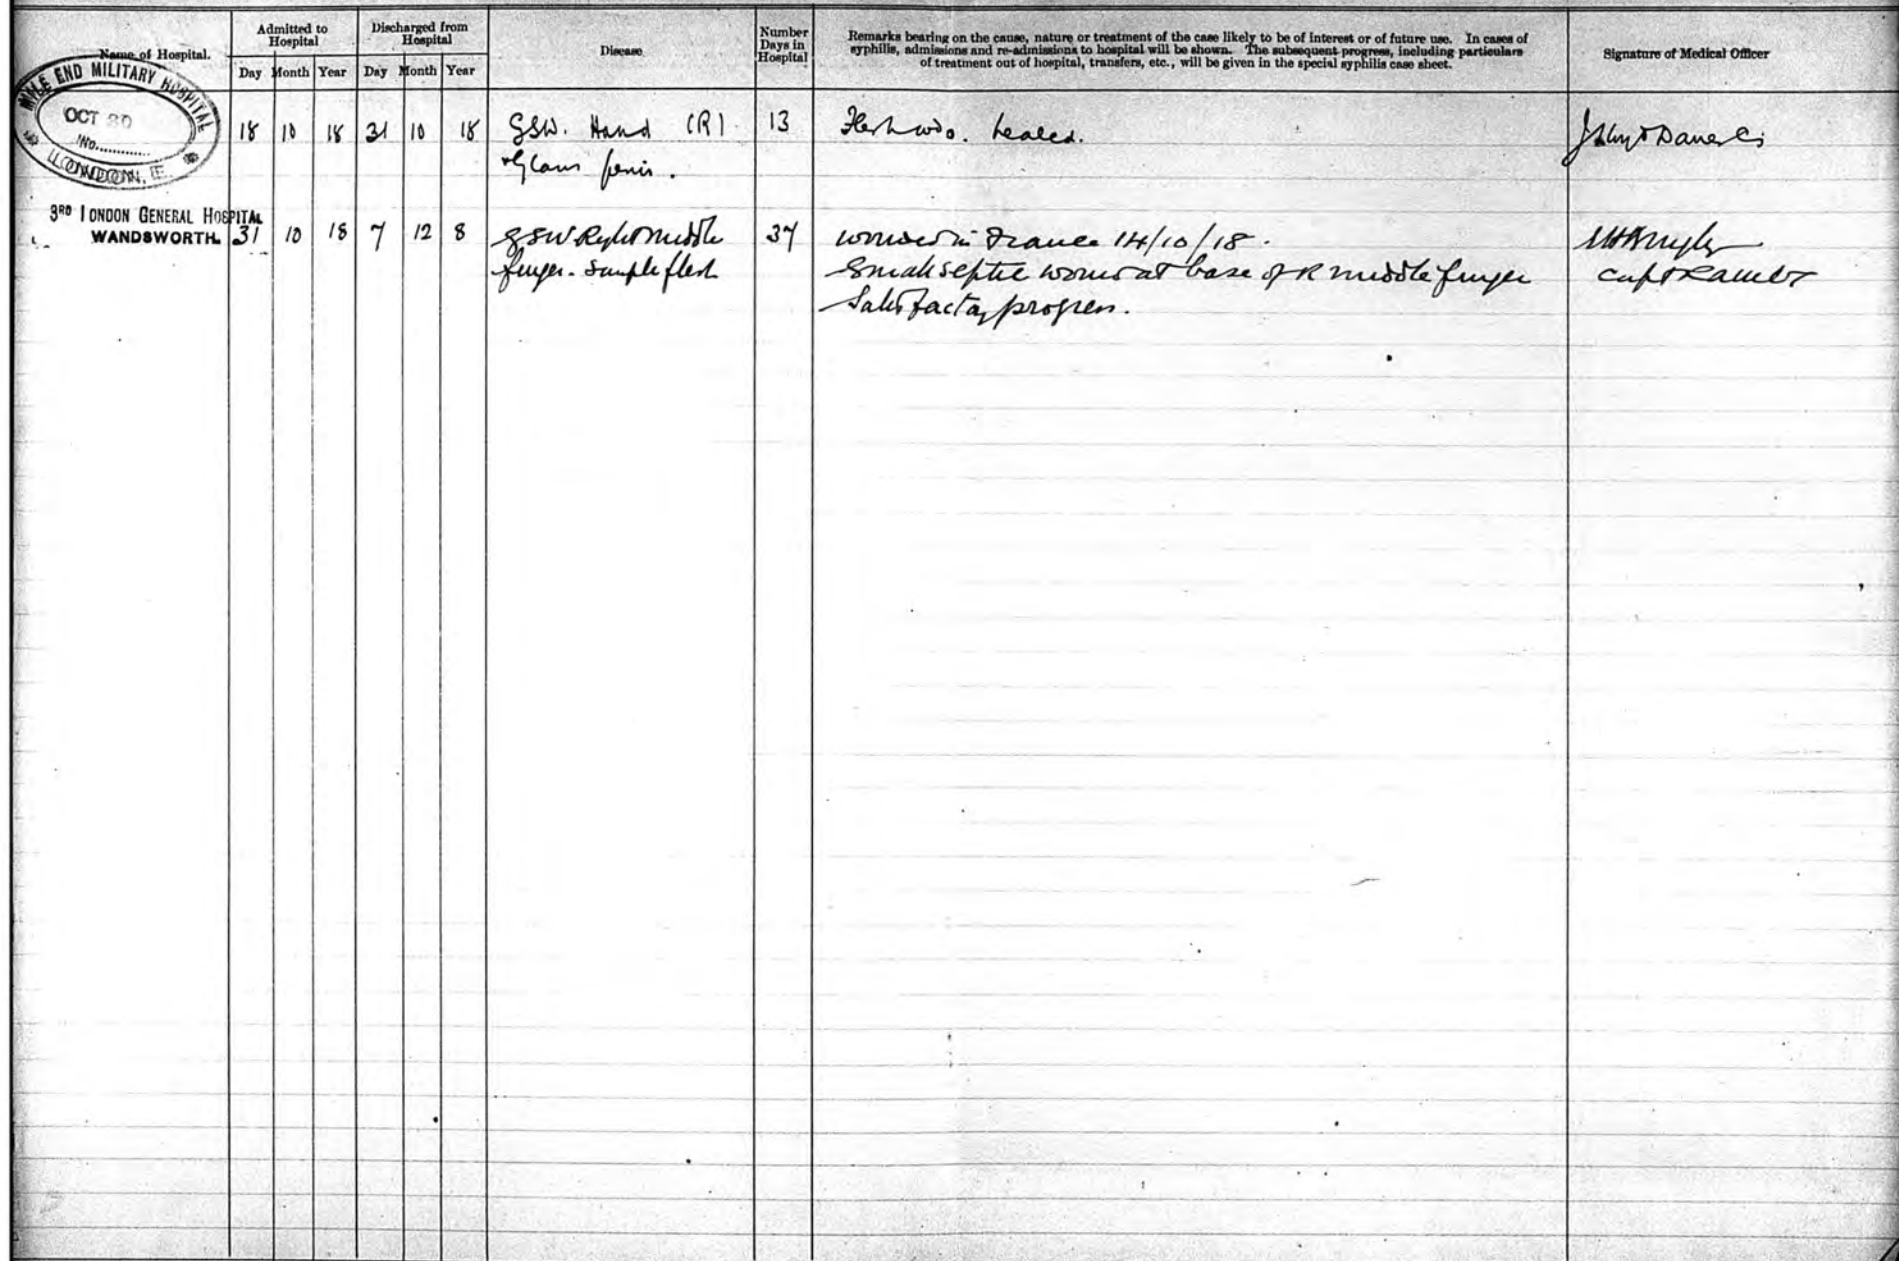 Name of Hospital.
Admitted to Hospital
Discharged from Hospital
Disease
Number Days in Hospital
Remarks bearing on the cause, nature or treatment of the case likely to be of interest or of future use. In cases of
syphilis, admissions and re-admissions to hospital will be shown. The subsequent progress, including particulars
of treatment out of hospital, transfers, etc., will be given in the special syphilis case sheet.
Signature of Medical Officer
Day Month Year Day Month Year
MILE END MILITARY HOSPITAL
OCT 30
No.
LONDON, E.
18 10 18 31 10 18 GSW. Hand (R) 13 Flesh wds. healed.
+ Glans penis.
3RD LONDON GENERAL HOSPITAL
WANDSWORTH. 31 10 18 7 12 8 GSW Right middle 37 wounded in France 14/10/18.
finger. Simple flesh Small septic wound at base of R middle finger
Capt RAMCT
Satisfactory progress.